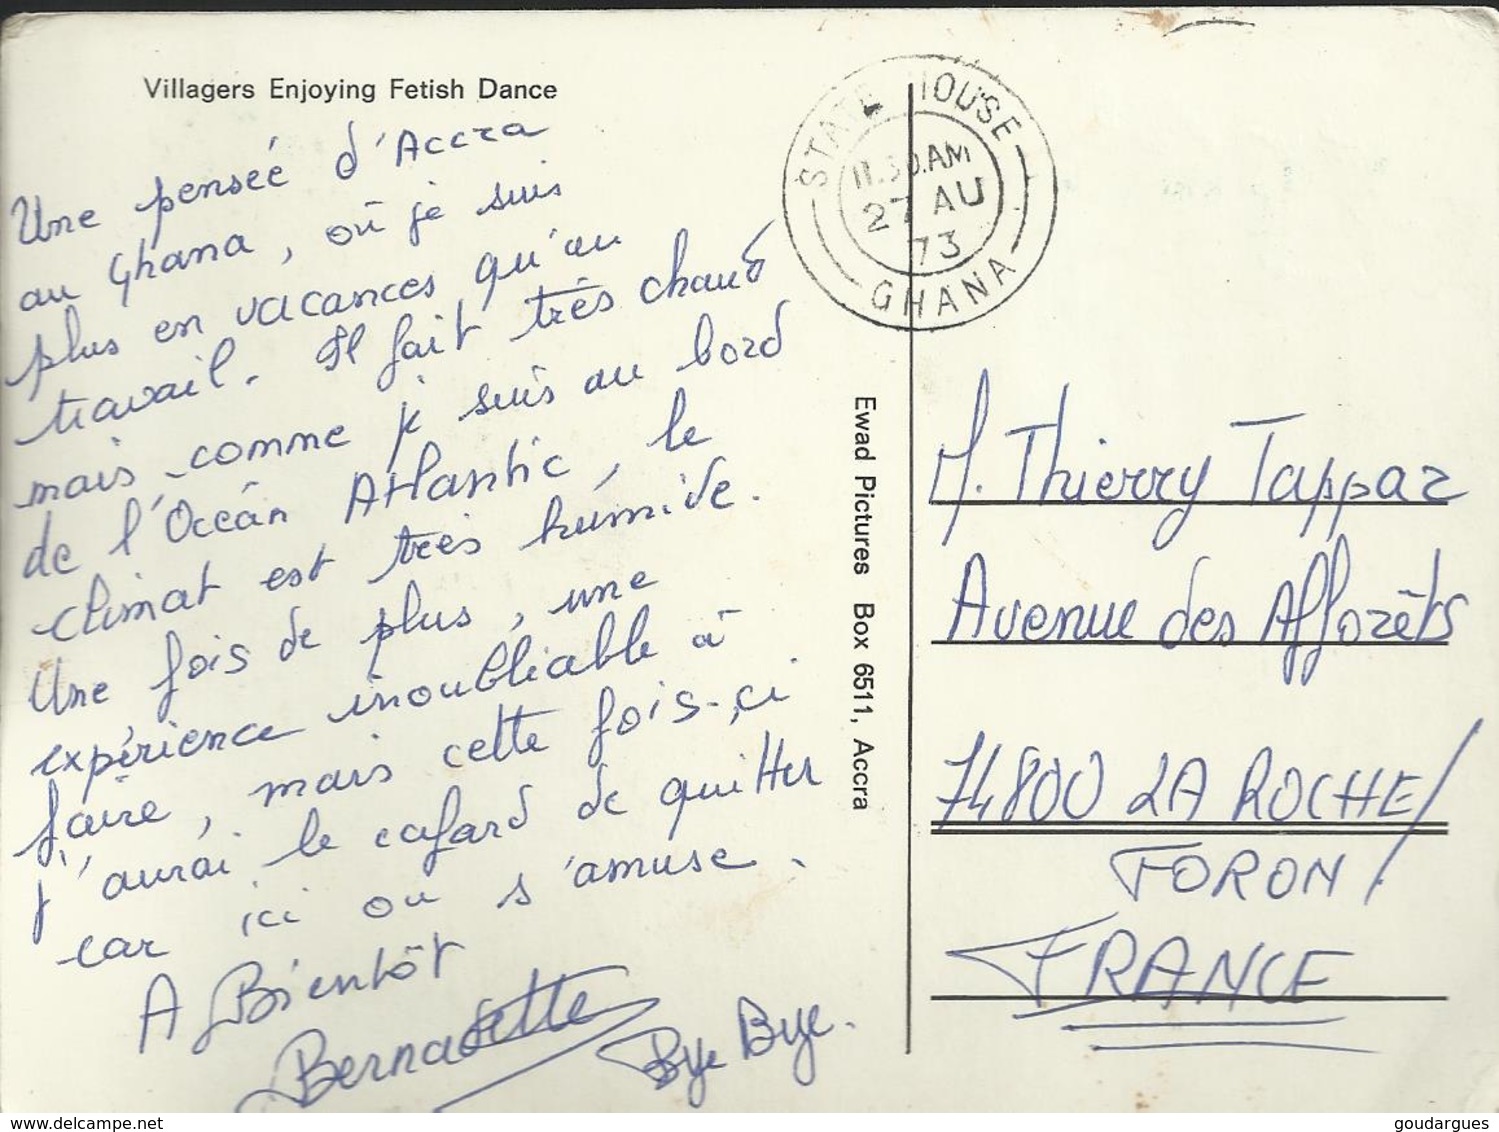 Villagers Enjoying Fetish Dance
Une pensée d'Accra
au Ghana, où je suis
plus en vacances qu'au
travail. Il fait très chaud
mais comme je suis au bord
de l'Océan Atlantic, le
climat est très humide.
Une fois de plus, une
expérience inoubliable à
faire, mais cette fois-ci
j'aurai le cafard de quitter
car ici on s'amuse.
A Bientôt
Bernadette
Bye Bye.
STATE HOUSE
11.30.AM
27 AU
73
GHANA
Ewad Pictures Box 6511, Accra
M. Thierry Tappaz
Avenue des Afforêts
74800 LA ROCHE/
FORON/
FRANCE
delcampe.net
goudargues